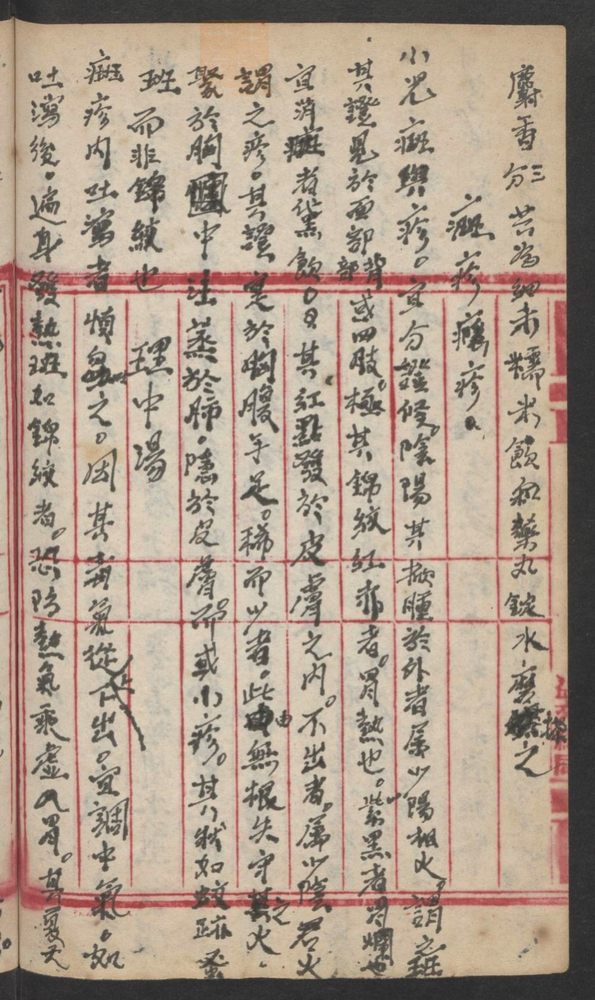 麝香三分 共為細末糯米飲和藥丸錠水磨搽之
斑疹癮疹
小兒斑與疹。宜分證候陰陽其掀腫於外者屬少陽相火。謂之斑
其證見於面部背部或四肢。極其錦紋紅赤者。胃熱也。紫黑者胃爛也
宜消斑者 飲。曰其紅點發於皮膚之內。不出者。屬少陰君火
謂之疹。其證見於胸腹手足。稀而少者。此由無根失守之火
聚於胸中 蒸於肺。隱於皮膚而或小疹。其狀如蚊蹤蚤
斑而非錦紋也 理中湯
斑疹內吐瀉者慎 之。因其毒氣從上下出。宜調中氣。如
吐瀉後。遍身發熱斑如錦紋者。恐防熱氣乘虛入胃。其